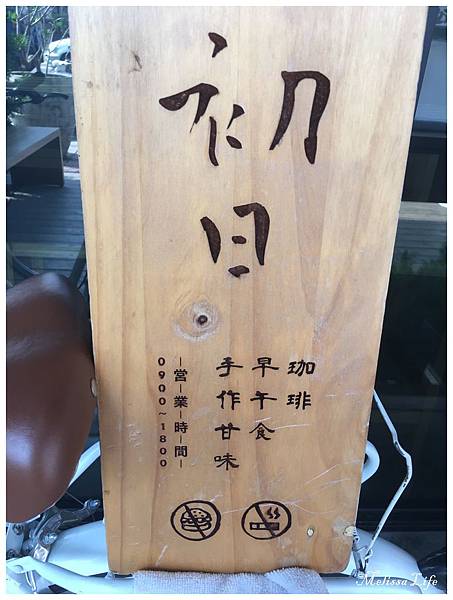 初日
珈琲
早午食
手作甘味
營業時間
0900~1800
Melissa Life